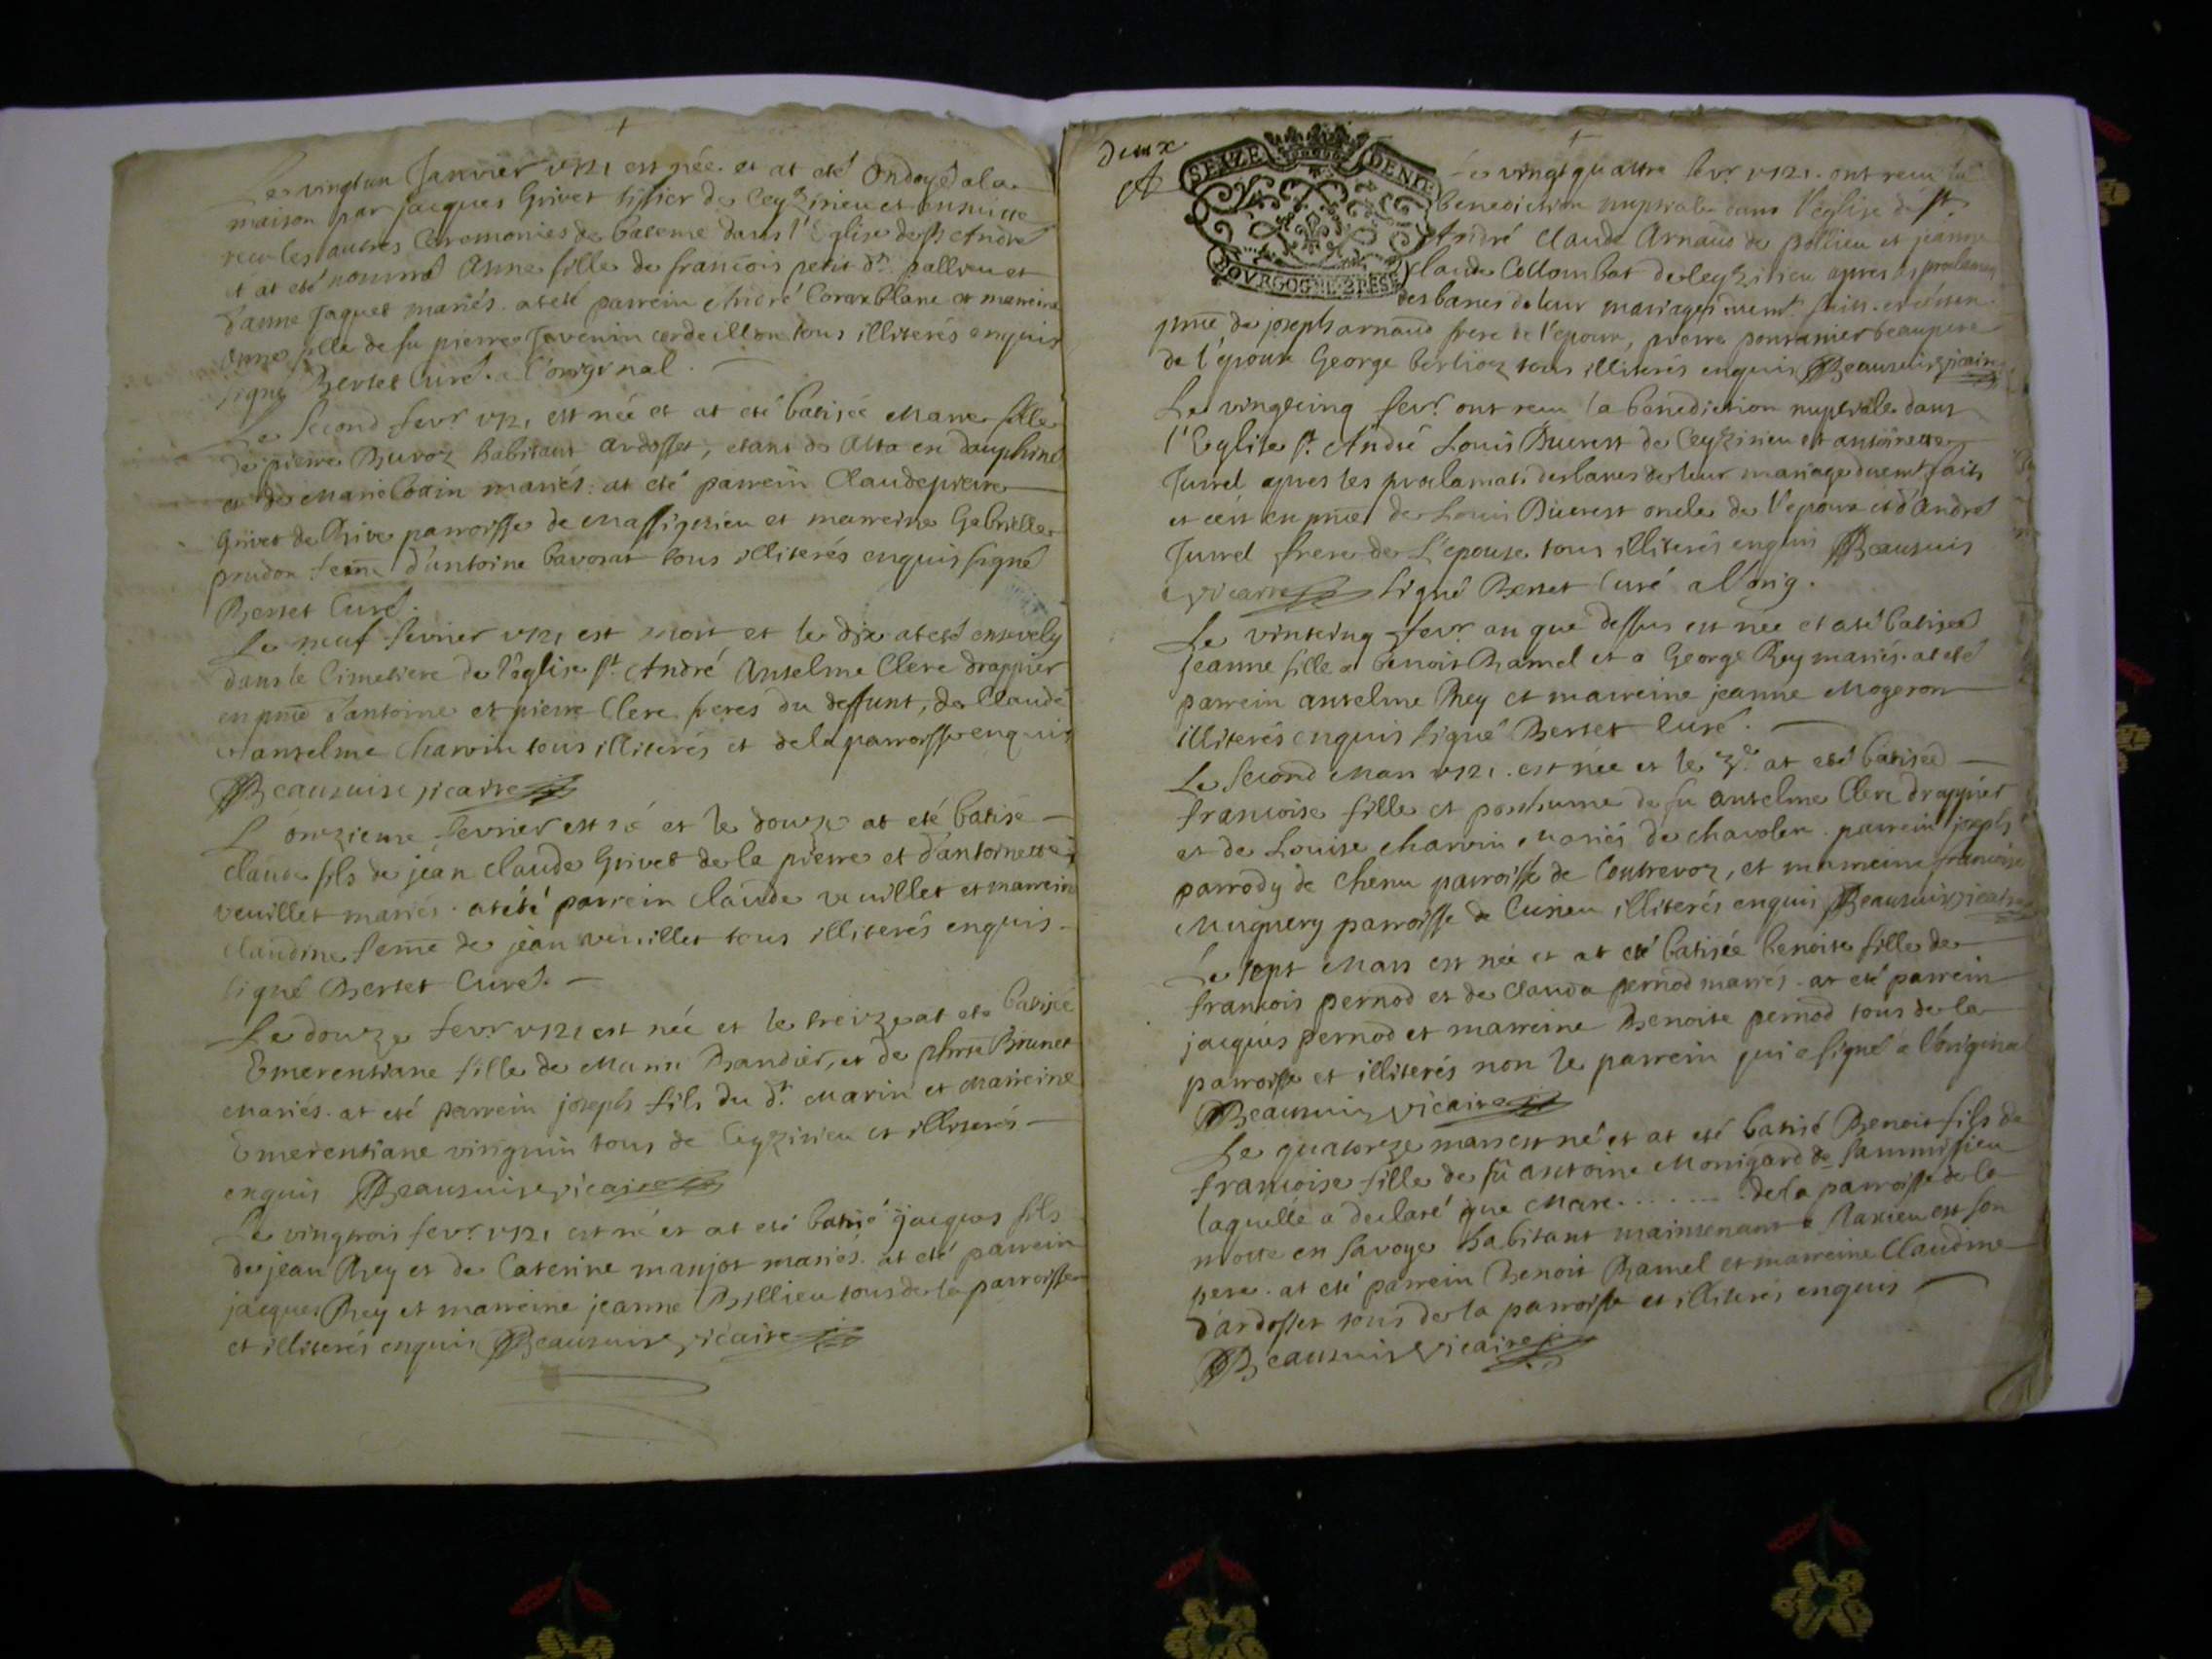 Le vingtun Janvier 1721 est née et at eté Ondoyé a la
maison par Jacques Grivet tissier de Ceyzirieu et ensuitte
receu les autres Ceremonies de bateme dans l'Eglise de St André
et at eté nommé Anne fille de francois petit dt pallieu et
d'anne Jaquet mariés. at eté parrein André Coraxblanc et marreine
Anne fille de fu pierre Javenin cordeillon tous illiterés enquis
signé Bertet Curé. a l'original.
Le second fevr 1721 est née et at eté batisée Marie fille
de pierre Buvoz habitant Ardosset, etant de Alta en dauphiné
et de Marie Corain mariés. at eté parrein Claude pierre
Grivet de Rive parroisse de Massignieu et marreine Gabrielle
prudon feme d'antoine bavorat tous illiterés enquis signé
Bertet Curé.
Le neuf fevrier 1721 est mort et le dix at eté ensevely
dans le Cimetiere de l'église St André Anselme Clerc drappier
en pnce d'antoine et pierre Clerc freres du deffunt, de Claude
anselme Charvin tous illiterés et de la parroisse enquis
Beauzuis vicaire
L'onzieme fevrier est né et le douze at eté batisé
claude fils de jean claude Grivet de la pierre et d'antoinette
veuillet mariés. at eté parrein claude veuillet et marreine
claudine feme de jean veuillet tous illiterés enquis
signé Bertet Curé.
Le douze fevr 1721 est née et le treize at eté batisée
Emerentiane fille de Marin Bandier, et de phrie Brunet
Mariés. at eté parrein joseph fils du dt Marin et Marreine
Emerentiane vinguin tous de Ceyzirieu et illiterés
enquis Beauzuis vicaire
Le vingtrois fevr 1721 est né et at eté batisé jacques fils
de jean Rey et de Caterine manjot mariés. at eté parrein
jacques Rey et marreine jeanne Billieu tous de la parroisse
et illiterés enquis Beauzuis vicaire
deux
SEIZE DENIE
BOURGOGNE BRESSE
Le vingt quattre fevr 1721. ont receu la
benediction nuptiale dans l'église de St
André Claude Arnaud de pollieu et jeanne
claude Collombat de Ceyzirieu apres les proclamaõn
des bancs de leur mariage duemt faits. et c'est en
pnce de joseph arnaud frere de l'epoux, pierre beaupere
de l'epouse George berlioz tous illiterés enquis Beauzuis vicaire
Le vingtcinq fevr. ont receu la benediction nuptiale dans
l'Eglise St André Louis Buerest de Ceyzirieu et antoinette
Jurrel apres les proclamati des bancs de leur mariage duemt faits
et c'est en pnce de Louis Buerest oncle de l'epoux et d'André
Jurrel frere de L'epouse tous illiterés enquis Beauzuis
vicaire signé Bertet Curé a l'orig.
Le vintcinq fevr an que dessus est née et a eté batisée
Jeanne fille a benoit Ramel et a George Rey mariés. at eté
parrein anselme Rey et marreine jeanne Mogeron
illiterés enquis signé Bertet Curé.
Le second Mars 1721. est née et le 3e. at eté batisée
francoise fille et posthume de fu anselme Clerc drappier
et de Louise charvin Mariés de chavolen. parrein joseph
parrody de Chenu parroisse de Contrevoz, et marreine francoise
Muguery parroisse de Cusieu illiterés enquis Beauzuis vicaire
Le sept Mars est née et at eté batisée benoite fille de
francois pernod et de clauda pernod mariés. at eté parrein
jacques pernod et marreine Benoite pernod tous de la
parroisse et illiterés non le parrein qui a signé a l'original
Beauzuis vicaire
Le quatorze mars est né et at eté batisé Benoit fils de
francoise fille de fû antoine Monigard de Sammissieu
laquelle a declaré que Marc........ de la parroisse de la
motte en Savoye habitant maintenant a Taxieu est son
pere. at eté parrein Benoit Ramel et marreine Claudine
d'ardosset tous de la parroisse et illiterés enquis
Beauzuis vicaire